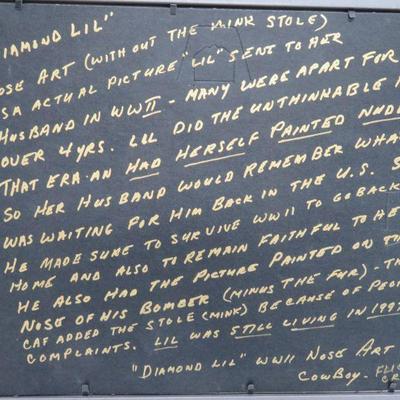 DIAMOND LIL"
NOSE ART (WITH OUT THE MINK STOLE)
IS A ACTUAL PICTURE "LIL" SENT TO HER
HUSBAND IN WW II - MANY WERE APART FOR
OVER 4 YRS. LIL DID THE UNTHINKABLE
THAT ERA. AN HAD HERSELF PAINTED NUDE
SO HER HUSBAND WOULD REMEMBER WHAT
WAS WAITING FOR HIM BACK IN THE U.S.
HE MADE SURE TO SURVIVE WW II TO GO BACK
HOME AND ALSO TO REMAIN FAITHFUL TO HE
HE ALSO HAD THE PICTURE PAINTED ON
NOSE OF HIS BOMBER (MINUS THE FUR) -
CAF ADDED THE STOLE (MINK) BECAUSE OF PEO
COMPLAINTS. LIL WAS STILL LIVING IN 199
"DIAMOND LIL" WW II NOSE ART
COWBOY -